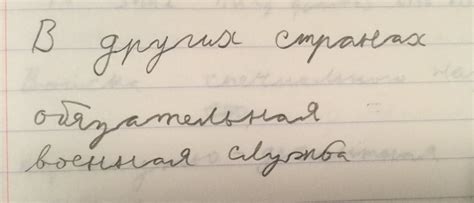 В других странах
обязательная
военная служба